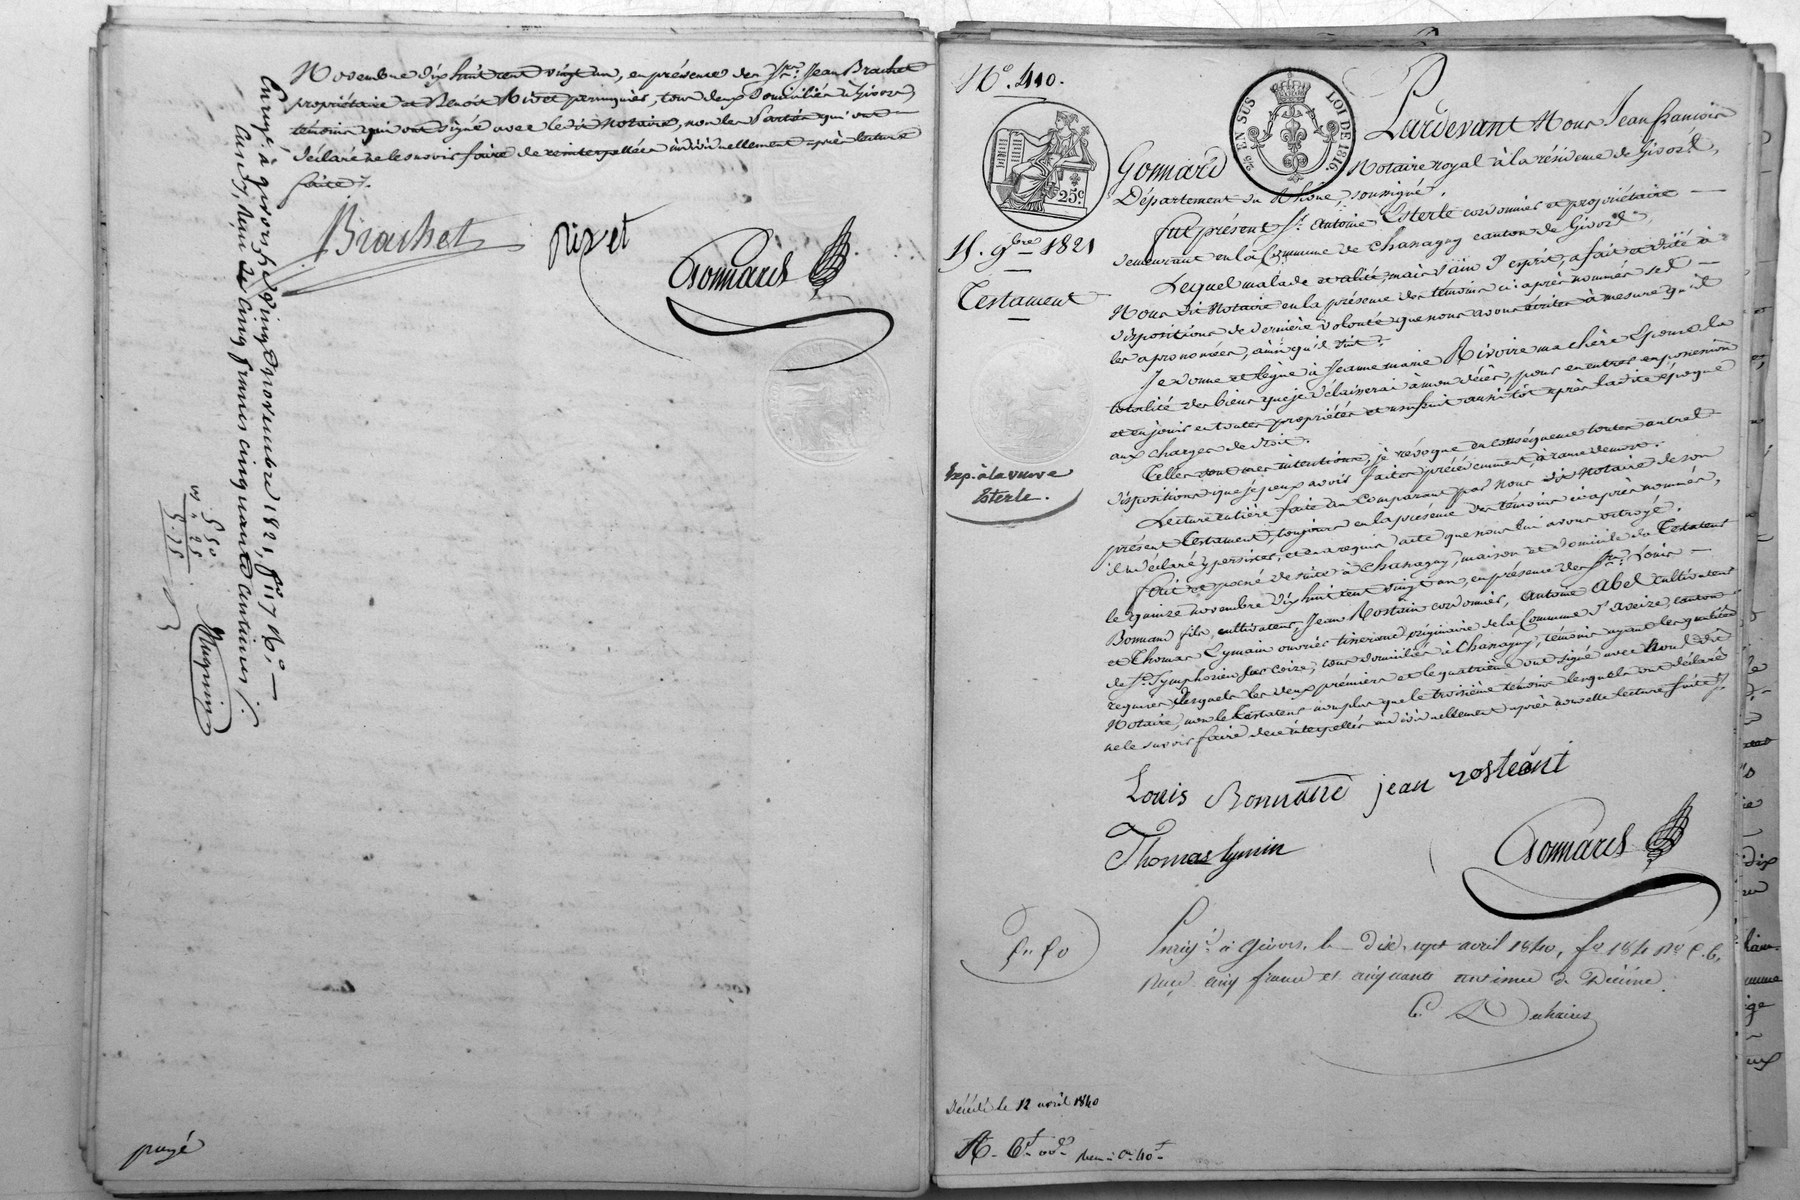 Novembre dix huit cent vingt un, en présence des Srs. Jean Brachet
propriétaire et Benoit Rivet perruquier, tous deux domiciliés à Givors,
témoins qui ont signé avec le dit Notaire, non les Parties qui ont
déclaré ne le savoir faire de ce interpellées individuellement après lecture
faite.
Brachet
Rivet
Gonnard
Enregé. à givors, le vingt novembre 1821, fo. 117 Ro. C.
Cardy, Reçu de cinq francs cinquante centimes
5. 50
" . 25
5. 75
Mugnier
payé
No. 410.
25c.
25 EN SUS
LOI DE 1816.
15. 9bre 1821
Testament
Exp. à la veuve
Esterle.
Pardevant Nous Jean françois
Gonnard Notaire royal à la résidence de Givors,
Département du Rhône, soussigné.
fut présent Sr. Antoine Esterle cordonnier et propriétaire
demeurant en la Commune de Chassagny canton de Givors
Lequel malade et alité, mais sain d'esprit, a fait et dicté à
Nous dit Notaire en la présence des témoins ci-après nommés ses
dispositions de dernière volonté que nous avons écrites à mesure qu'il
les a prononcées, ainsi qu'il suit.
Je donne et lègue à Jeanne marie Rivoire ma chère Epouse la
totalité des biens que je délaisserai à mon décès, pour en entrer en possession
et en jouir en toutes propriétés et usufruit aussitôt après ladite époque
aux charges de droit.
Telles sont mes intentions, je révoque en conséquence toutes autres
dispositions que je peux avoir faites précédemment à rame demort.
Lecture entière faite au Comparant par Nous dit Notaire de son
présent testament, toujours en la présence des témoins ci-après nommés,
il a déclaré y persister, et en a requis acte que nous lui avons octroyé.
fait et passé de suite à Chassagny, maison et domicile du Testateur
le quinze novembre dix huit cent vingt un, en présence des Srs. Louis
Bonnand fils, cultivateur, Jean Rostain cordonnier, Antoine Abel cultivateur
et Thomas Lymain ouvrier tisserand originaire de la Commune d'aveize, canton
de St. Symphorien sur Coize, tous domiciliés à Chassagny, témoins ayant les qualités
requises, desquels les deux premiers et le quatrième ont signé avec Nous dit
Notaire, non le testateur non plus que le troisième témoin lesquels ont déclaré
ne le savoir faire de ce interpellés individuellement après nouvelle lecture faite.
Louis Bonnand jean rosteant
Thomas lymin
Gonnard
Enregé. à Givors, le dix sept avril 1840, fo. 184 Ro. C. 6,
Reçu cinq francs et cinquante centimes de Décime.
Décédé le 12 avril 1840